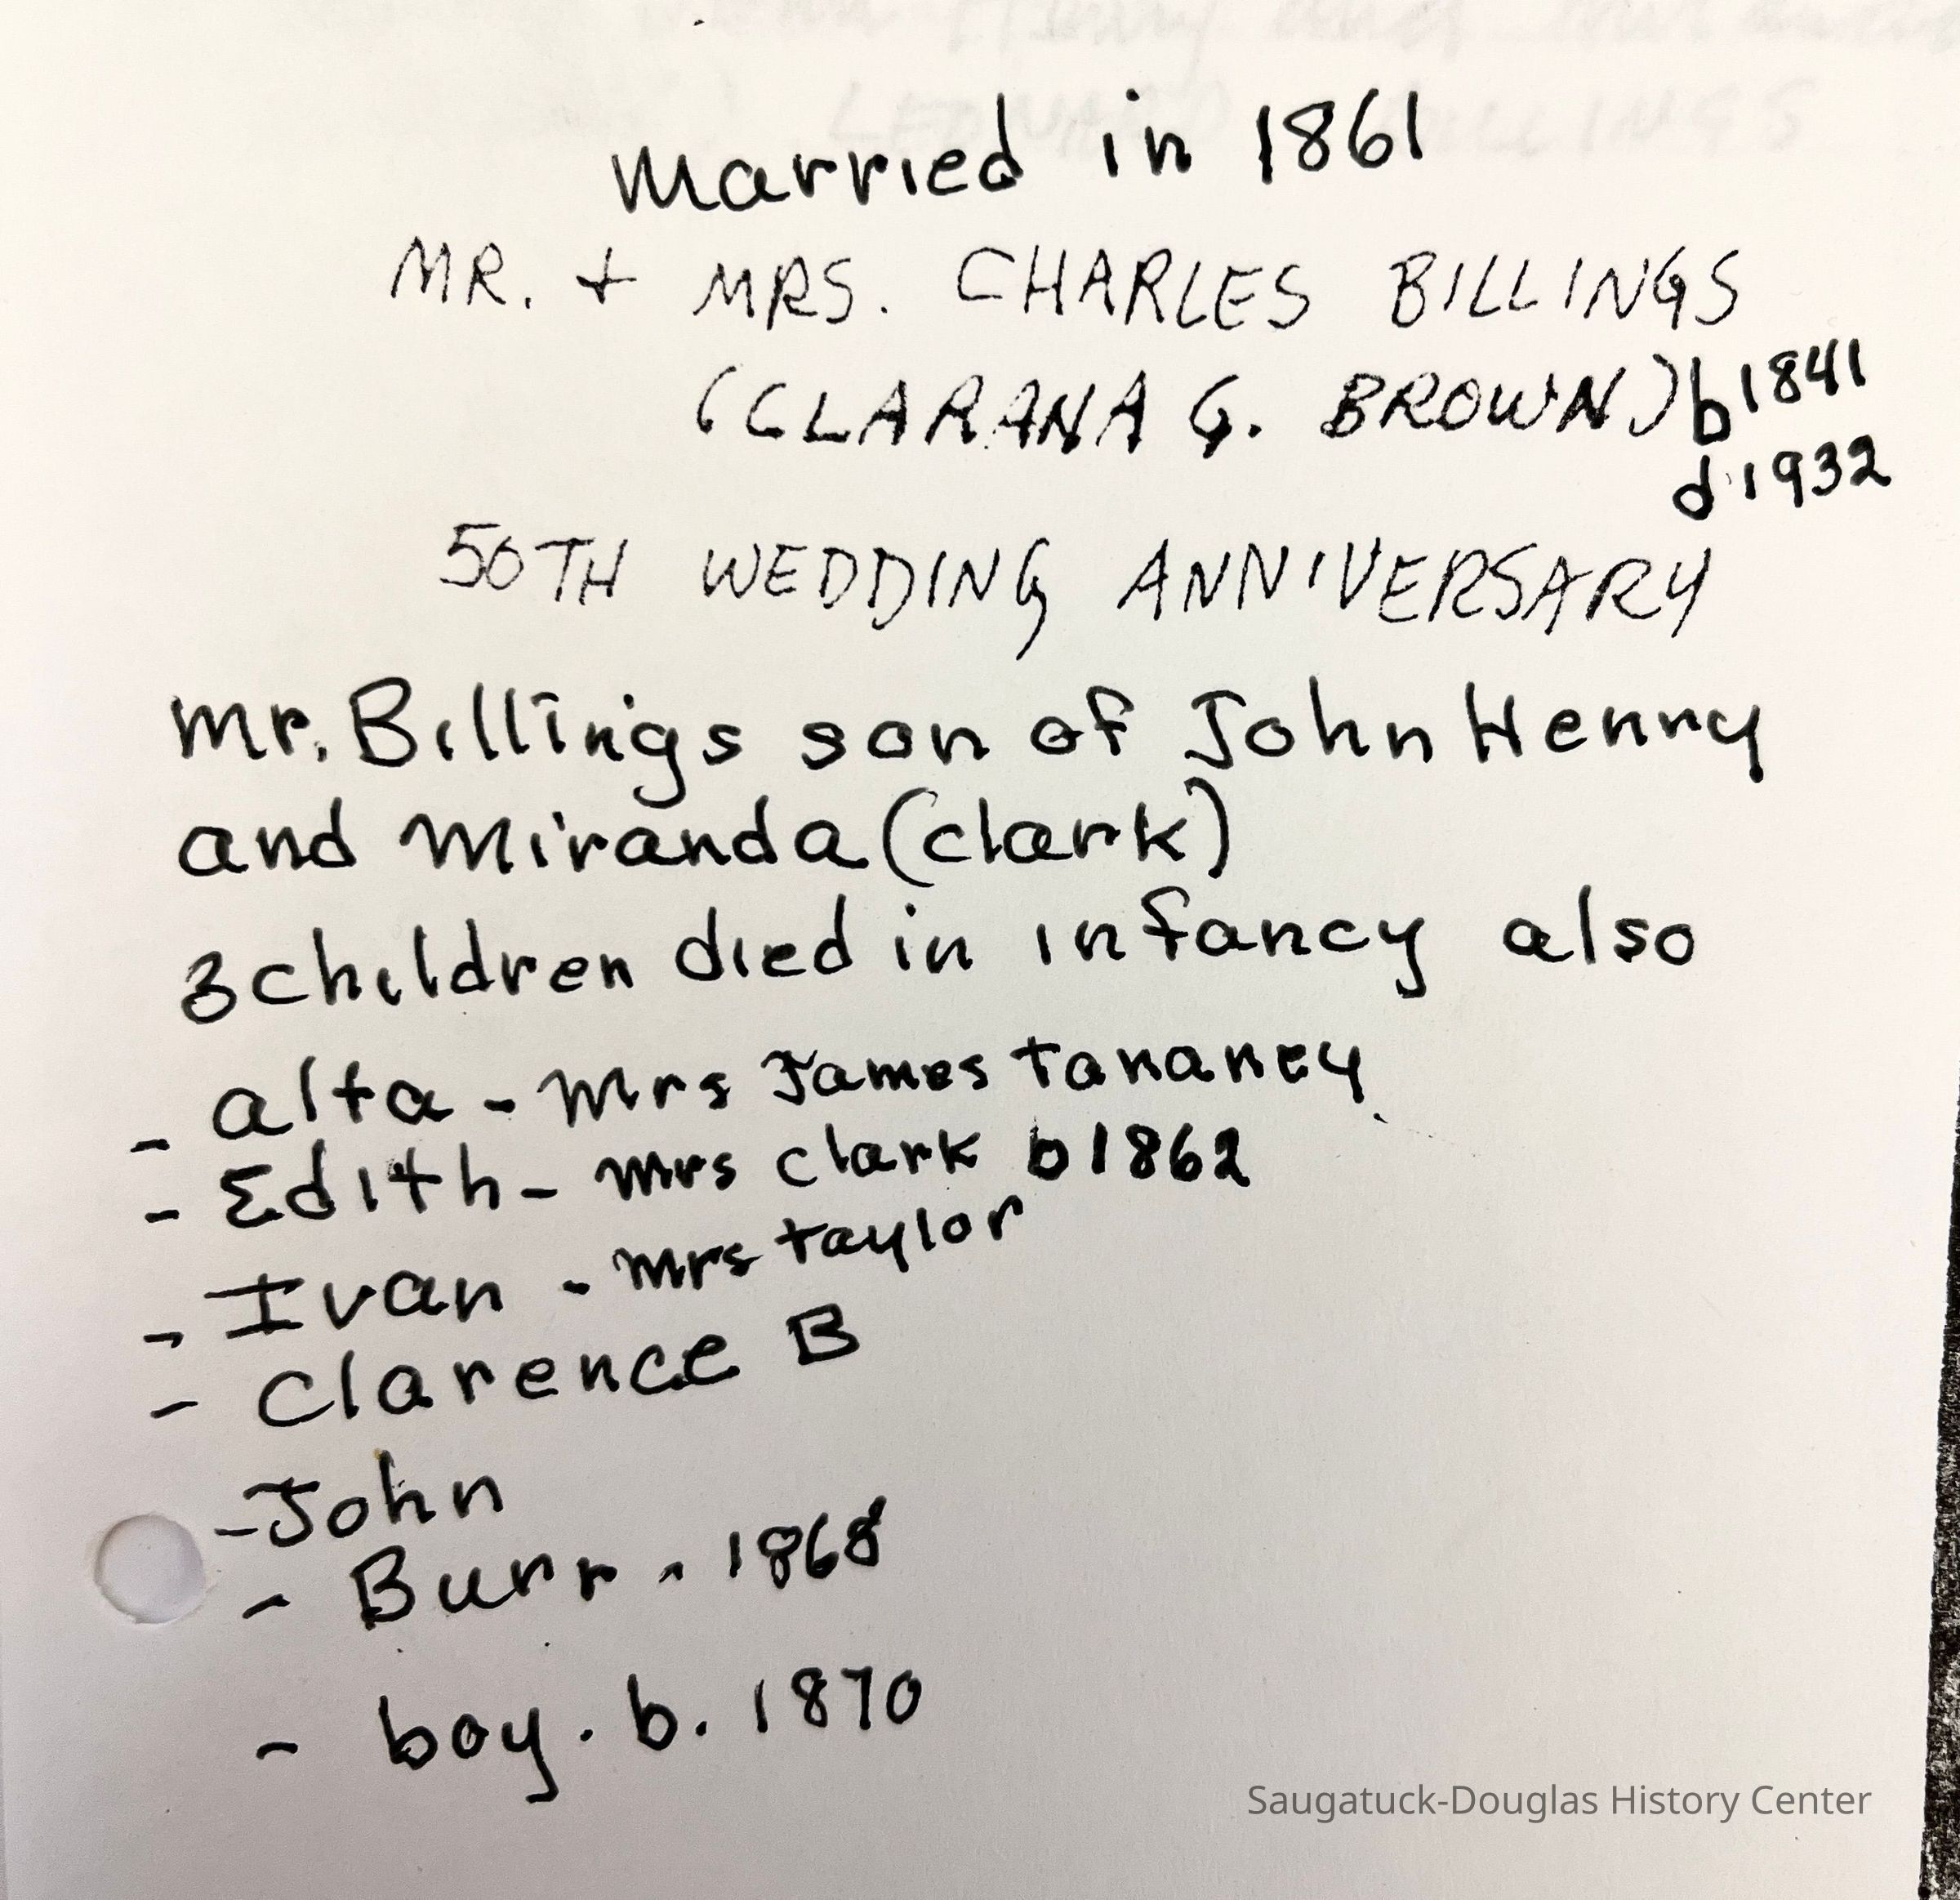 Married in 1861
MR. + MRS. CHARLES BILLINGS
(CLARANA G. BROWN) b 1841
d 1932
50TH WEDDING ANNIVERSARY
Mr. Billings son of John Henry
and Miranda (Clark)
3 children died in infancy also
- Alta - Mrs James Tananey
- Edith - Mrs Clark b 1862
- Ivan - Mrs Taylor
- Clarence B
- John
- Burr - 1868
- boy. b. 1870
Saugatuck-Douglas History Center